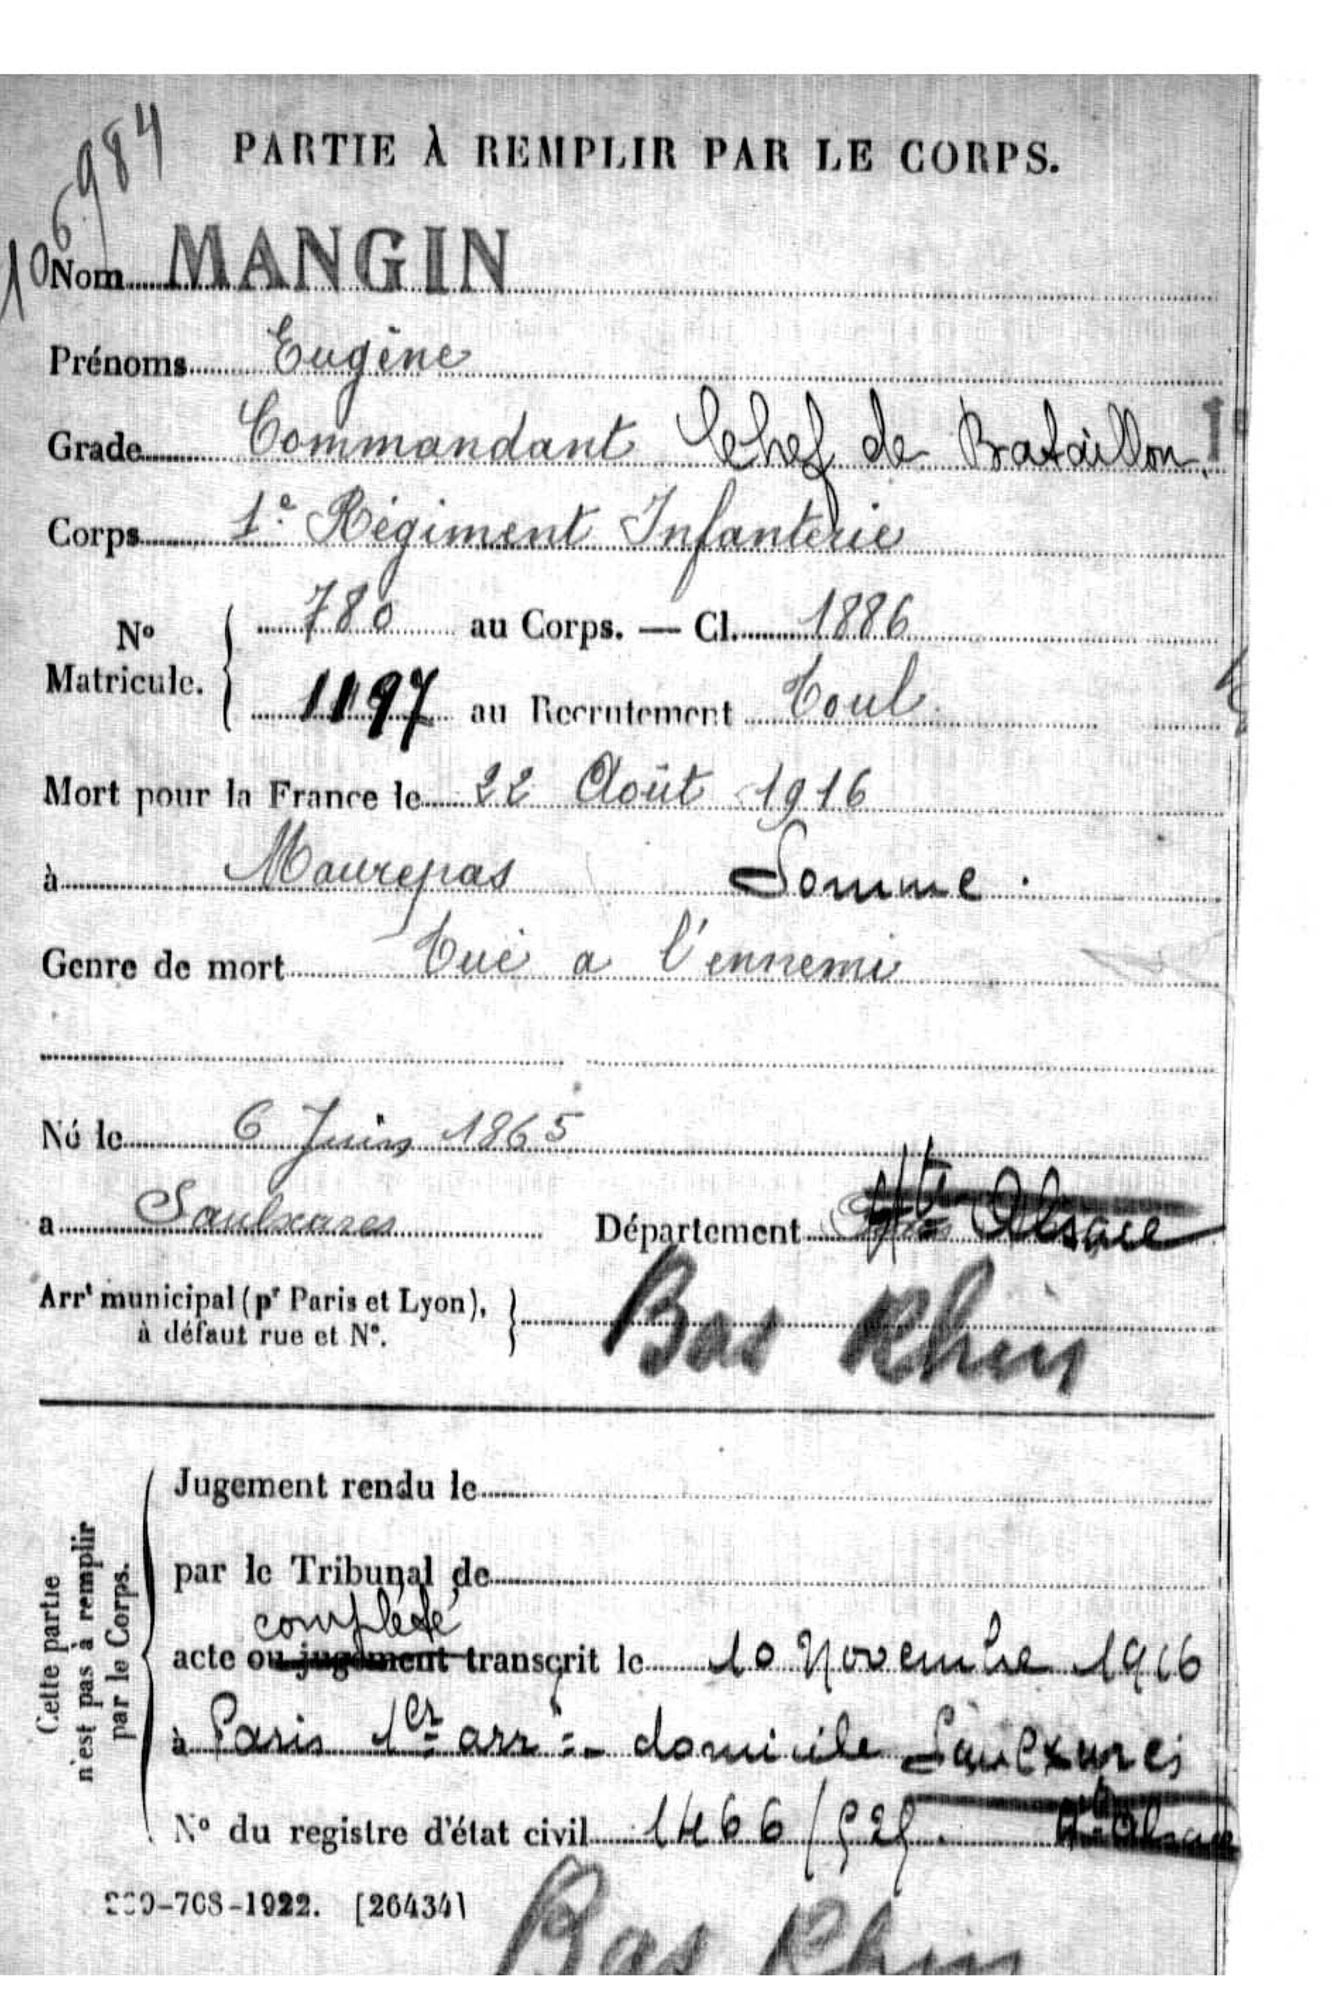 106984
PARTIE À REMPLIR PAR LE CORPS.
Nom MANGIN
Prénoms Eugène
Grade Commandant Chef de Bataillon
Corps 1e Régiment Infanterie
No Matricule. { 780 au Corps. — Cl. 1886
1197 au Recrutement Toul
Mort pour la France le 22 Août 1916
à Maurepas Somme.
Genre de mort Tué a l'ennemi
Né le 6 Juin 1865
a Saulxures Département Hte Alsace
Arrt municipal (pr Paris et Lyon),
à défaut rue et No. } Bas Rhin
Cette partie
n'est pas à remplir
par le Corps.
Jugement rendu le
par le Tribunal de
complété
acte ou jugement transcrit le 10 Novembre 1916
à Paris 1er arr:- domicile Saulxures
No du registre d'état civil 1466/525. Hte Alsace
-708-1922. [26434]
Bas Rhin